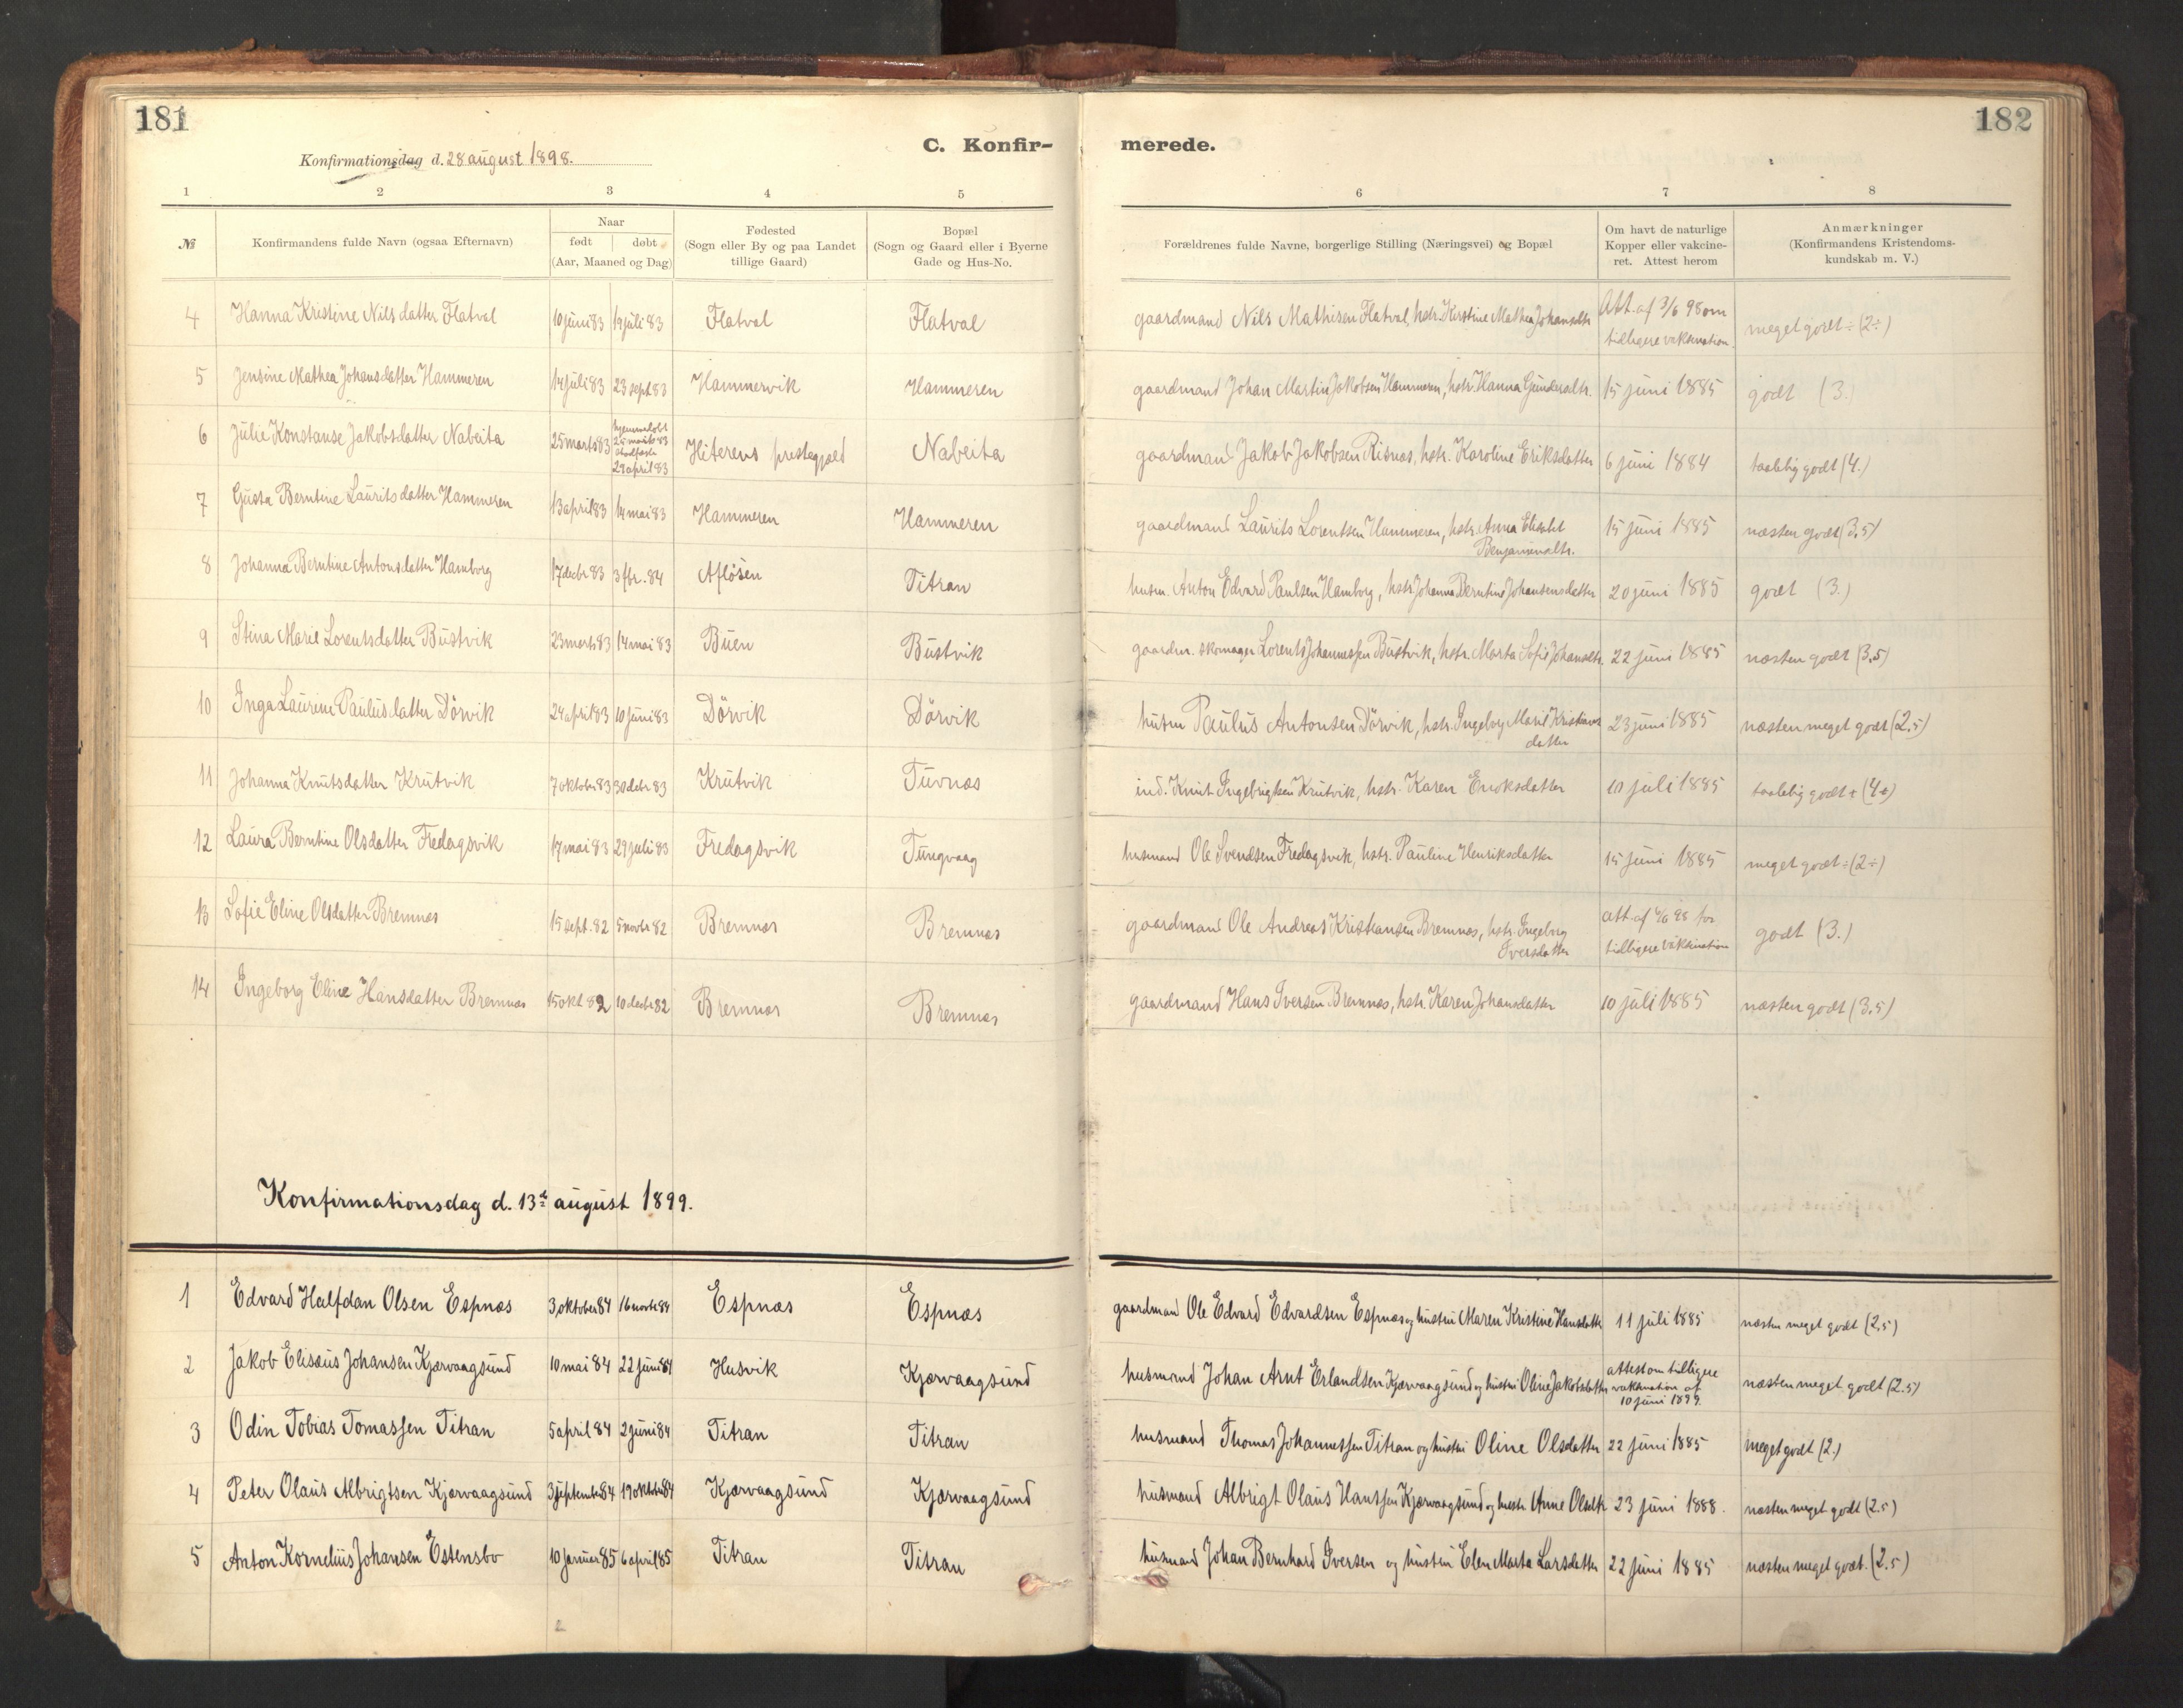 181
182
C. Konfir-
merede.
Konfirmationsdag d. 28 august 1898.
1 2 3 4 5 6 7 8
№
Konfirmandens fulde Navn (ogsaa Efternavn)
Naar
født | døbt
(Aar, Maaned og Dag)
Fødested
(Sogn eller By og paa Landet
tillige Gaard)
Bopæl
(Sogn og Gaard eller i Byerne
Gade og Hus-No.
Forældrenes fulde Navne, borgerlige Stilling (Næringsvei) og Bopæl
Om havt de naturlige
Kopper eller vakcine-
ret. Attest herom
Anmærkninger
(Konfirmandens Kristendoms-
kundskab m. V.)
4 Hanna Kristine Nilsdatter Flatval 10 juni 83 19 juli 83 Flatval Flatval gaardmand Nils Mathisen Flatval, hstr. Kirstine Mathea Johansdtr Att. af 3/6 98 om
tidligere vaksination. meget godt ÷ (2÷)
5 Jensine Mathea Johansdatter Hammeren 14 juli 83 23 sept 83 Hammervik Hammeren gaardmand Johan Martin Jakobsen Hammeren, hstr. Hanna Gundersdtr. 15 juni 1885 godt (3.)
6 Julie Konstanse Jakobsdatter Nabeita 25 marts 83 hjemmedøbt
25 marts 83
stadfæstet
29 april 83 Hiterens prestegjeld Nabeita gaardmand Jakob Jakobsen Risnæs, hstr. Karoline Eriksdatter 6 juni 1884 taalelig godt (4.)
7 Gusta Berntine Lauritsdatter Hammeren 13 april 83 14 mai 83 Hammeren Hammeren gaardmand Laurits Lorentsen Hammeren, hstr. Anna Elisabet
Benjaminsdtr. 15 juni 1885 næsten godt (3,5)
8 Johanna Berntine Antonsdatter Hamborg 17 decbr 83 3 fbr. 84 Afløsen Titran husm. Anton Edvard Paulsen Hamborg, hstr Johanna Berntine Johansensdatter 20 juni 1885 godt (3.)
9 Stina Marie Lorentsdatter Bustvik 23 marts 83 14 mai 83 Buen Bustvik gaardm. skomager Lorents Johannessen Bustvik, hstr. Marta Sofie Johansdtr. 22 juni 1885 næsten godt (3,5)
10 Inga Laurine Paulusdatter Dörvik 24 april 83 10 juni 83 Dörvik Dörvik husm Paulus Antonsen Dörvik, hstr. Ingeborg Marie Kristians
datter 23 juni 1885 næsten meget godt (2,5)
11 Johanna Knutsdatter Krutvik 7 oktober 83 30 decbr 83 Krutvik Tuvnæs ind. Knut Ingebrigtsen Krutvik, hstr. Karen Enoksdatter 10 juli 1885 taalelig godt + (4+)
12 Laura Berntine Olsdatter Fredagsvik 17 mai 83 29 juli 83 Fredagsvik Tungvaag husmand Ole Svendsen Fredagsvik, hstr. Pauline Henriksdatter 15 juni 1885 meget godt ÷ (2÷)
13 Sofie Eline Olsdatter Bremnes 15 sept. 82 5 novbr 82 Bremnæs Bremnæs gaardmand Ole Andreas Kristiansen Bremnæs, hstr. Ingeborg
Iversdatter att. af 4/6 98 for
tidligere vaksination godt (3.)
14 Ingeborg Eline Hansdatter Bremnæs 15 okt 82 10 decbr 82 Bremnæs Bremnæs gaardmand Hans Iversen Bremnæs, hstr. Karen Johansdatter 10 juli 1885 næsten godt (3,5)
Konfirmationsdag d. 13de august 1899.
1 Edvard Halfdan Olsen Espnæs 3 oktober 84 16 novbr 84 Espnæs Espnæs gaardmand Ole Edvard Edvardsen Espnæs og hustru Maren Kristine Hansdatter 11 juli 1885 næsten meget godt (2,5)
2 Jakob Elisæus Johansen Kjærvaagsund 10 mai 84 22 juni 84 Husvik Kjærvaagsund husmand Johan Arnt Erlandsen Kjærvaagsund og hustru Oline Jakobsdatter attest om tidligere
vaksination af
10 juni 1899. næsten meget godt (2.5)
3 Odin Tobias Tomassen Titran 5 april 84 2 juni 84 Titran Titran husmand Thomas Johannessen Titran og hustru Oline Olsdatter 22 juni 1885 meget godt (2.)
4 Peter Olaus Albrigtsen Kjærvaagsund 3 september 84 19 oktober 84 Kjærvaagsund Kjærvaagsund husmand Albrigt Olaus Hanssen Kjærvaagsund og hustr. Anne Olsdtr 23 juni 1888. næsten meget godt (2.5)
5 Anton Kornelius Johansen Estensbo 10 januar 85 6 april 85 Titran Titran husmand Johan Bernhard Iversen og hustru Elen Marta Larsdatter 22 juni 1885 næsten meget godt. (2.5)